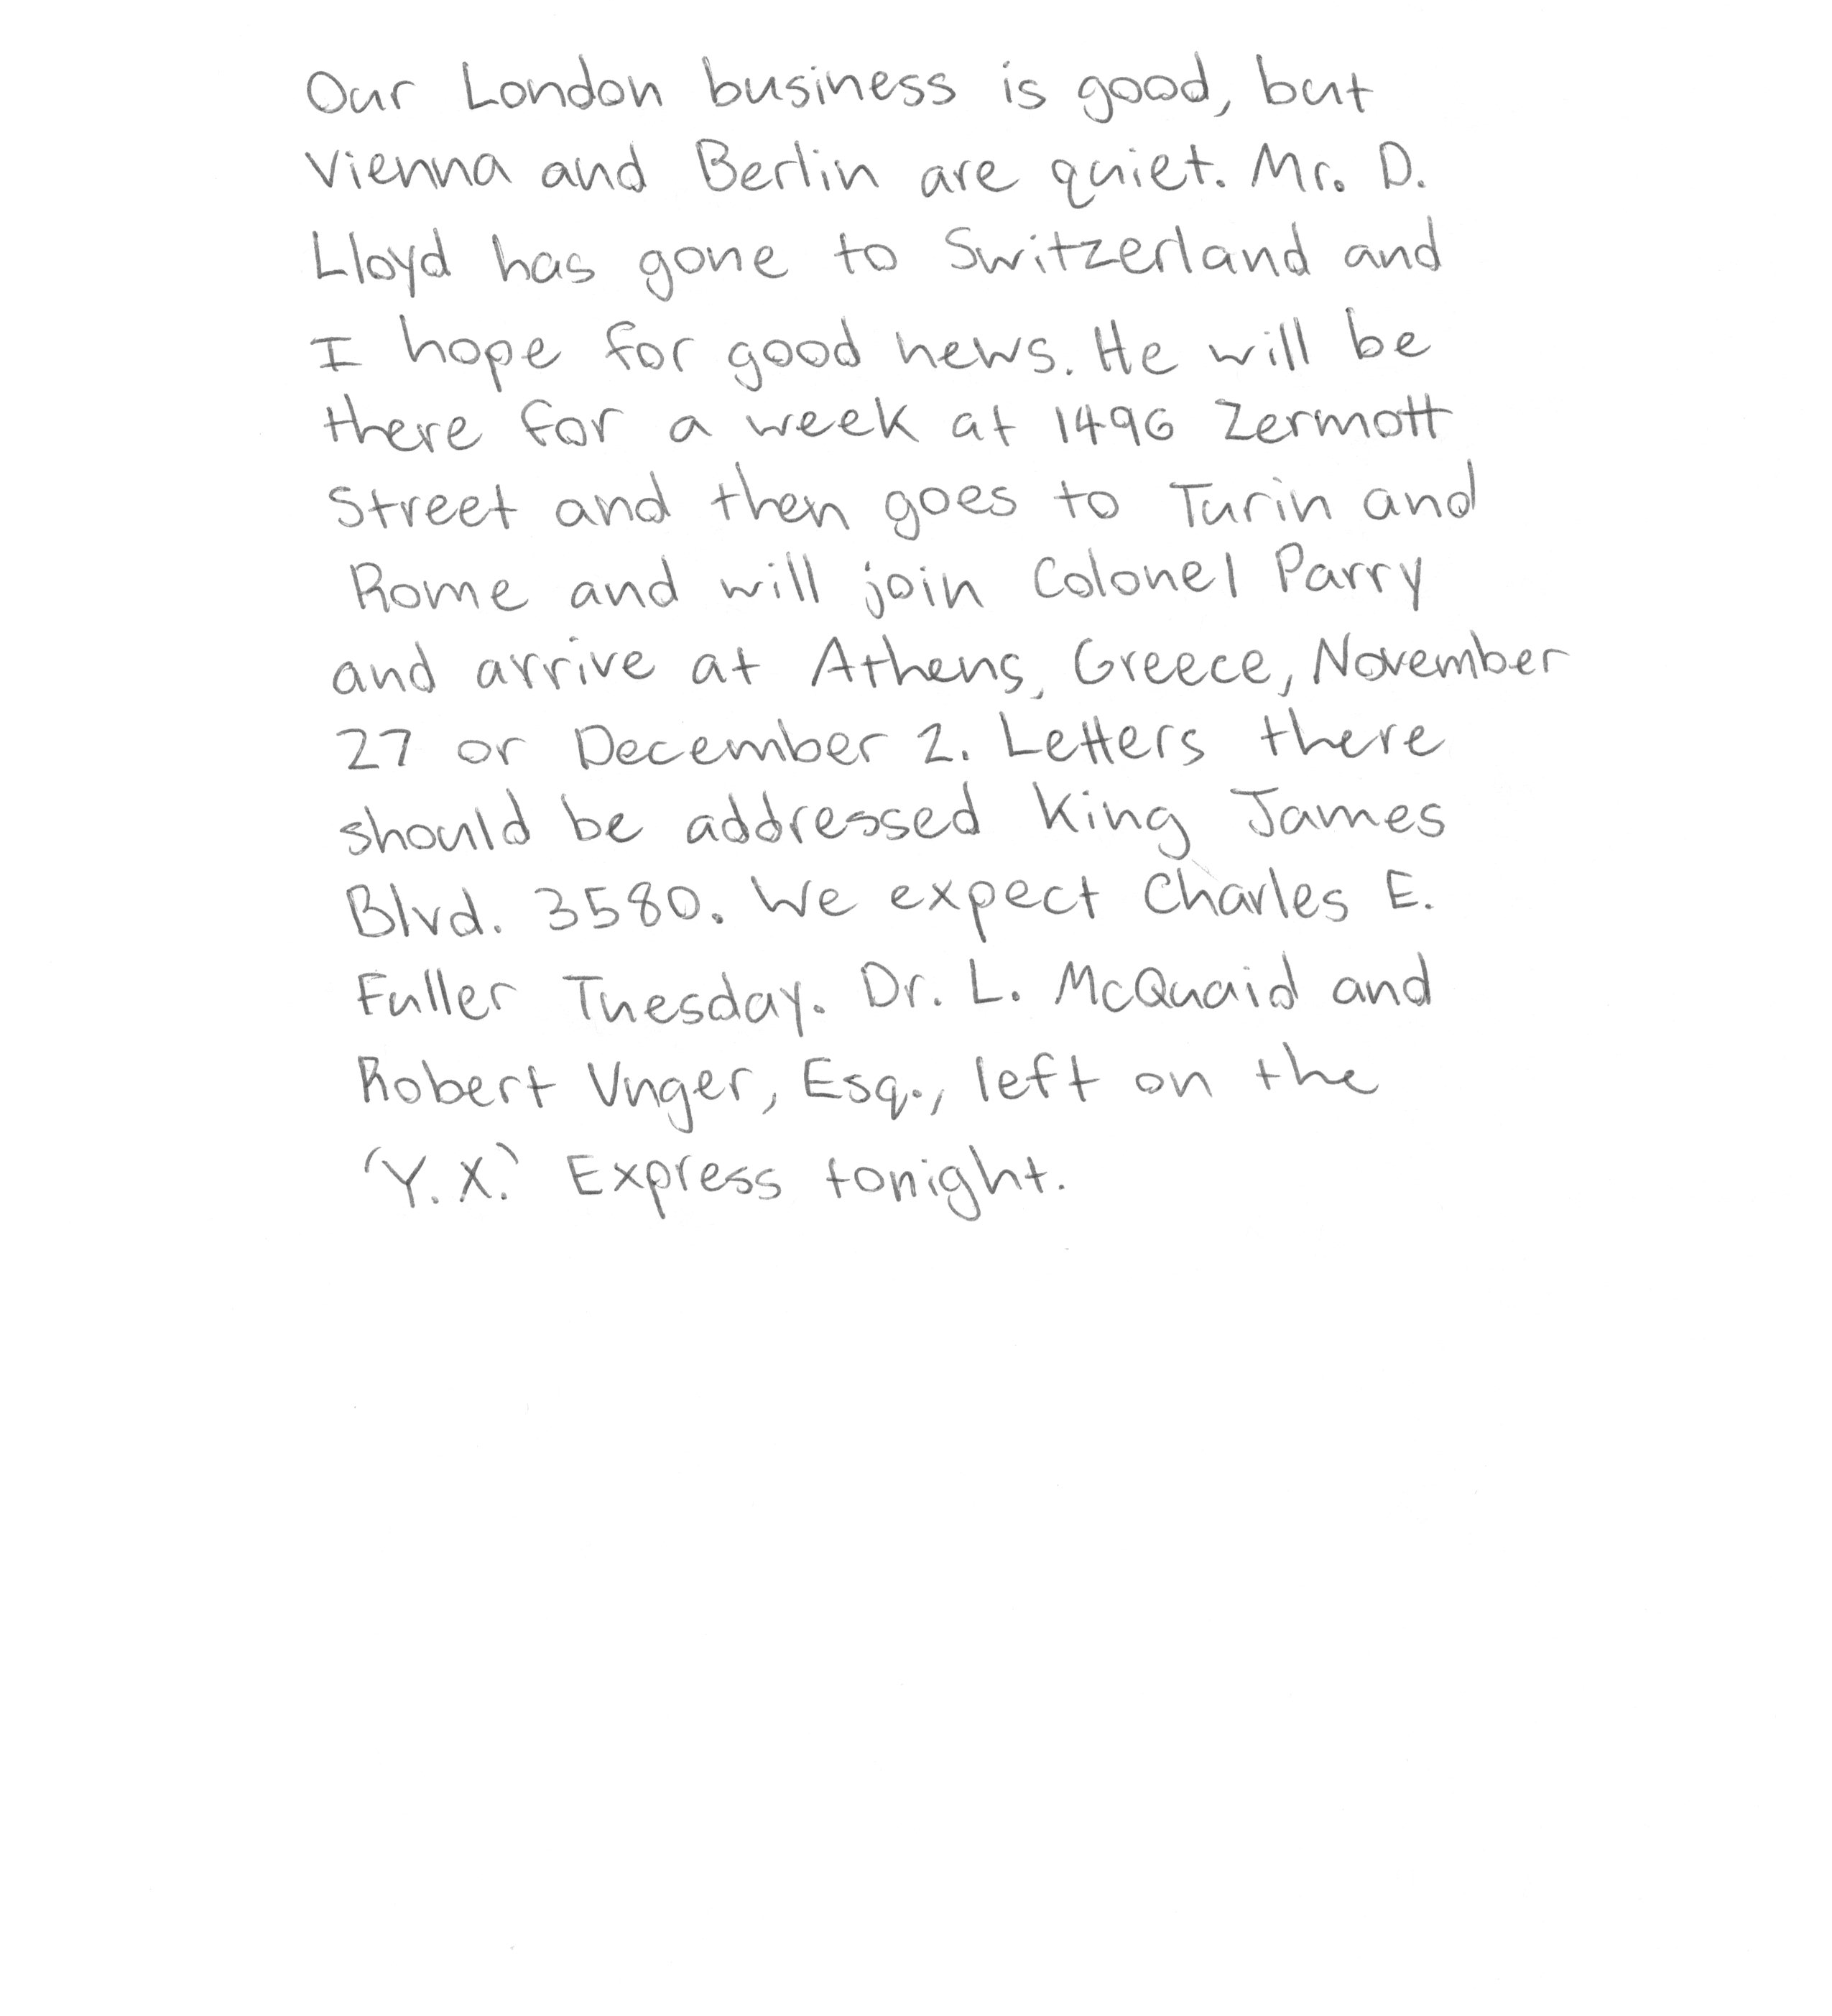 Our London business is good, but
Vienna and Berlin are quiet. Mr. D.
Lloyd has gone to Switzerland and
I hope for good news. He will be
there for a week at 1496 Zermott
Street and then goes to Turin and
Rome and will join Colonel Parry
and arrive at Athens, Greece, November
27 or December 2. Letters there
should be addressed King James
Blvd. 3580. We expect Charles E.
Fuller Tuesday. Dr. L. McQuaid and
Robert Unger, Esq., left on the
'Y.X.' Express tonight.